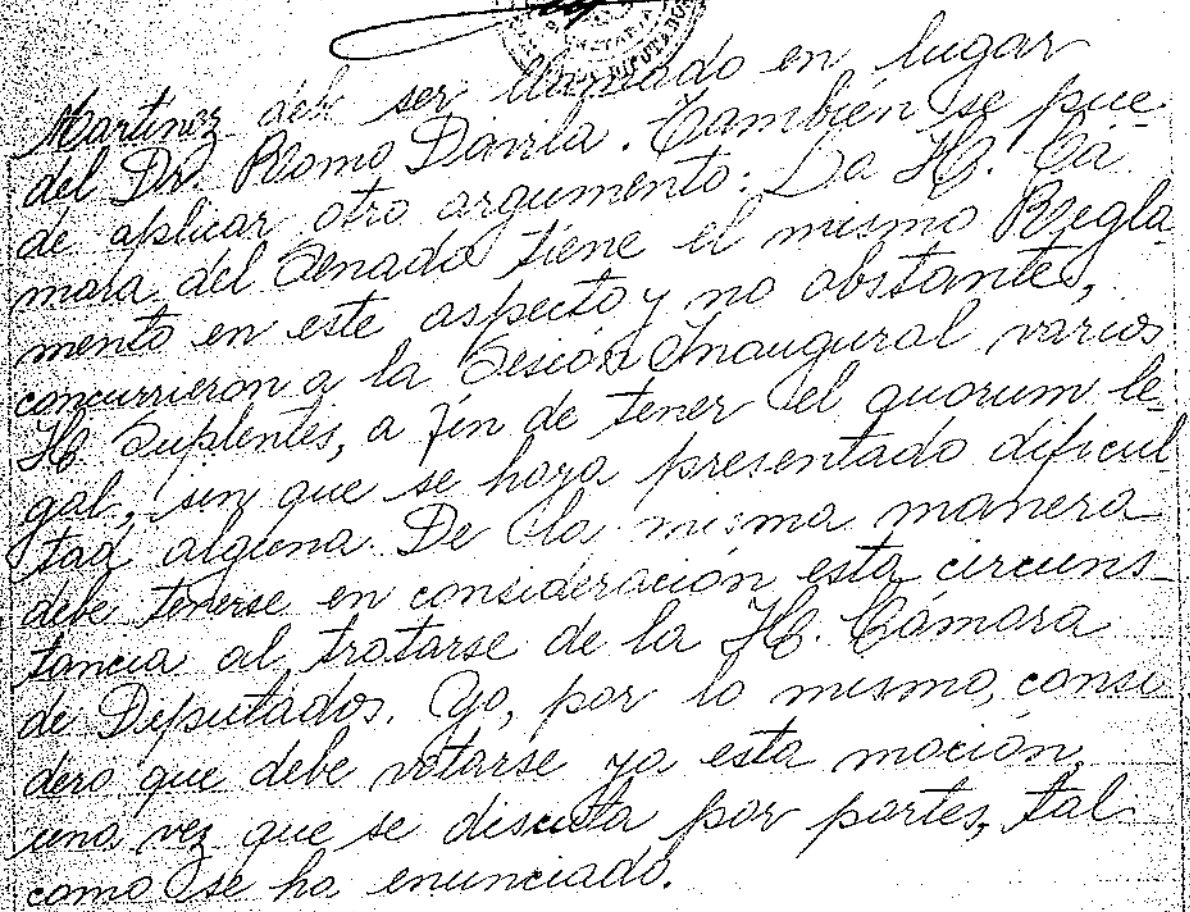 SECRETARIA
DIPUTADOS
Martínez debe ser llamado en lugar
del Dr. Romo Dávila. También se pue-
de aplicar otro argumento: La H. Cá-
mara del Senado tiene el mismo Regla-
mento en este aspecto y no obstante,
concurrieron a la Sesión Inaugural varios
HH. Suplentes, a fin de tener el quorum le-
gal, sin que se haya presentado dificul-
tad alguna. De la misma manera
debe tenerse en consideración esta circuns-
tancia al tratarse de la H. Cámara
de Diputados. Yo, por lo mismo, consi-
dero que debe votarse ya esta moción,
una vez que se discuta por partes, tal
como se ha enunciado.